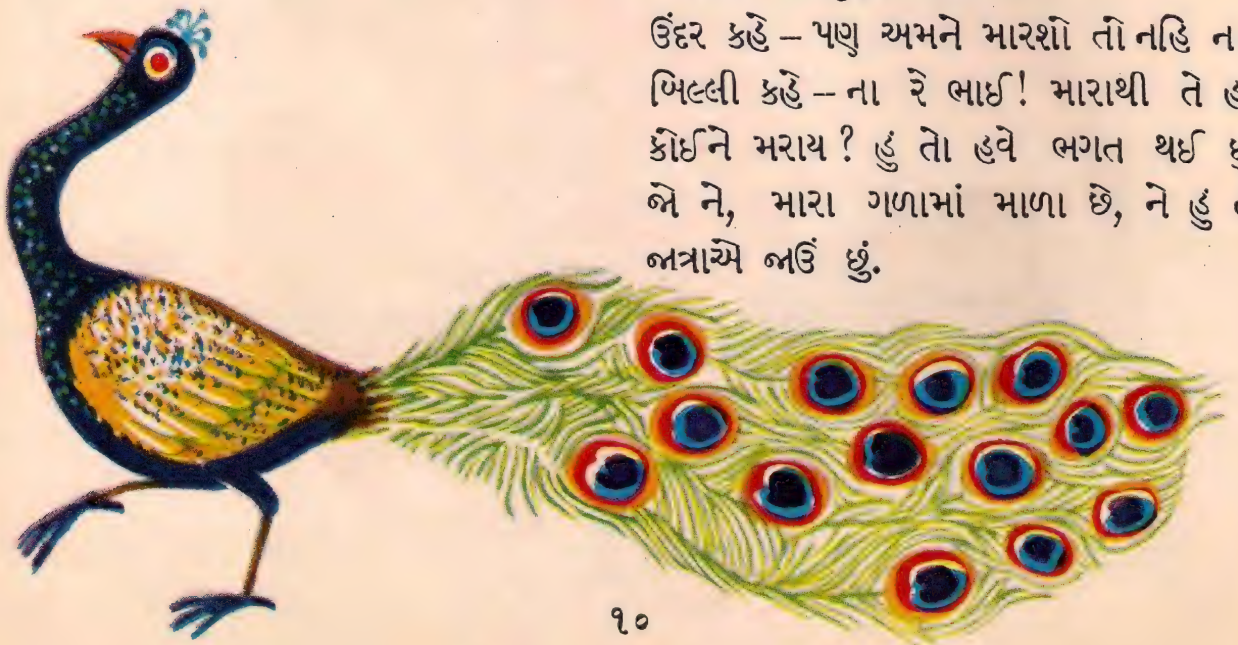 ઉંદર કહે – પણ અમને મારશો તો નહિ ન
બિલ્લી કહે – ના રે ભાઈ! મારાથી તે હ
કોઈને મરાય? હું તો હવે ભગત થઈ છુ
જો ને, મારા ગળામાં માળા છે, ને હું
જાત્રાએ જાઉં છું.
૧૦